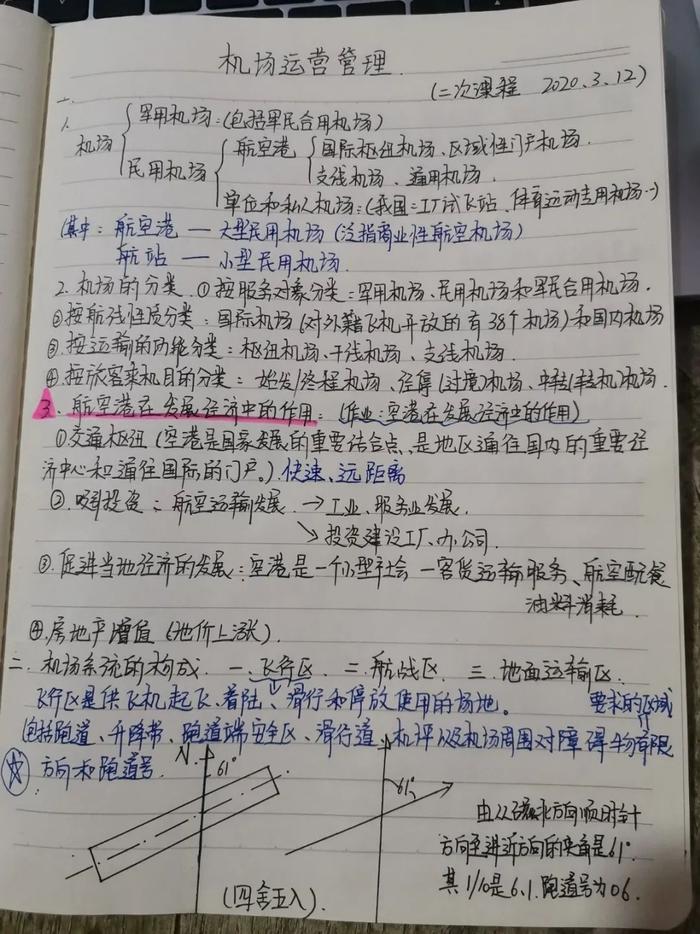 机场运营管理.
(二次课程 2020.3.12)
一.
1. 机场 军用机场:(包括军民合用机场)
民用机场 航空港 国际枢纽机场、区域性门户机场.
支线机场、通用机场.
单位和私人机场:(我国:工厂试飞站、体育运动专用机场…)
(其中: 航空港 — 大型民用机场 (泛指商业性航空机场)
航站 — 小型民用机场.
2. 机场的分类. ①按服务对象分类:军用机场、民用机场和军民合用机场.
②按航线性质分类: 国际机场 (对外籍飞机开放的有38个机场)和国内机场
③.按运输的功能分类: 枢纽机场、干线机场、支线机场.
④按旅客乘机目的分类: 始发/终程机场、经停(过境)机场、中转(转机)机场.
3. 航空港在发展经济中的作用: (作业:空港在发展经济中的作用)
①交通枢纽 (空港是国家发展的重要结合点、是地区通往国内的重要经
济中心和通往国际的门户。). 快速、远距离
②.吸引投资: 航空运输发展 → 工业、服务业发展.
↘ 投资建设工厂、办公司.
③.促进当地经济的发展: 空港是一个小型社会 — 客货运输服务、航空配餐
油料消耗.
④.房地产增值 (地价上涨).
二. 机场系统的构成. 一.飞行区. 二.航战区. 三.地面运输区.
飞行区是供飞机起飞、着陆、滑行和停放使用的场地。 要求的区域
(包括跑道、升降带、跑道端安全区、滑行道、机坪以及机场周围对障碍物有限
☆ 方向和跑道号.
N 61°
61°
由从磁北方向顺时针
方向至进近方向的夹角是61°.
其1/10是6.1.跑道号为06.
(四舍五入).